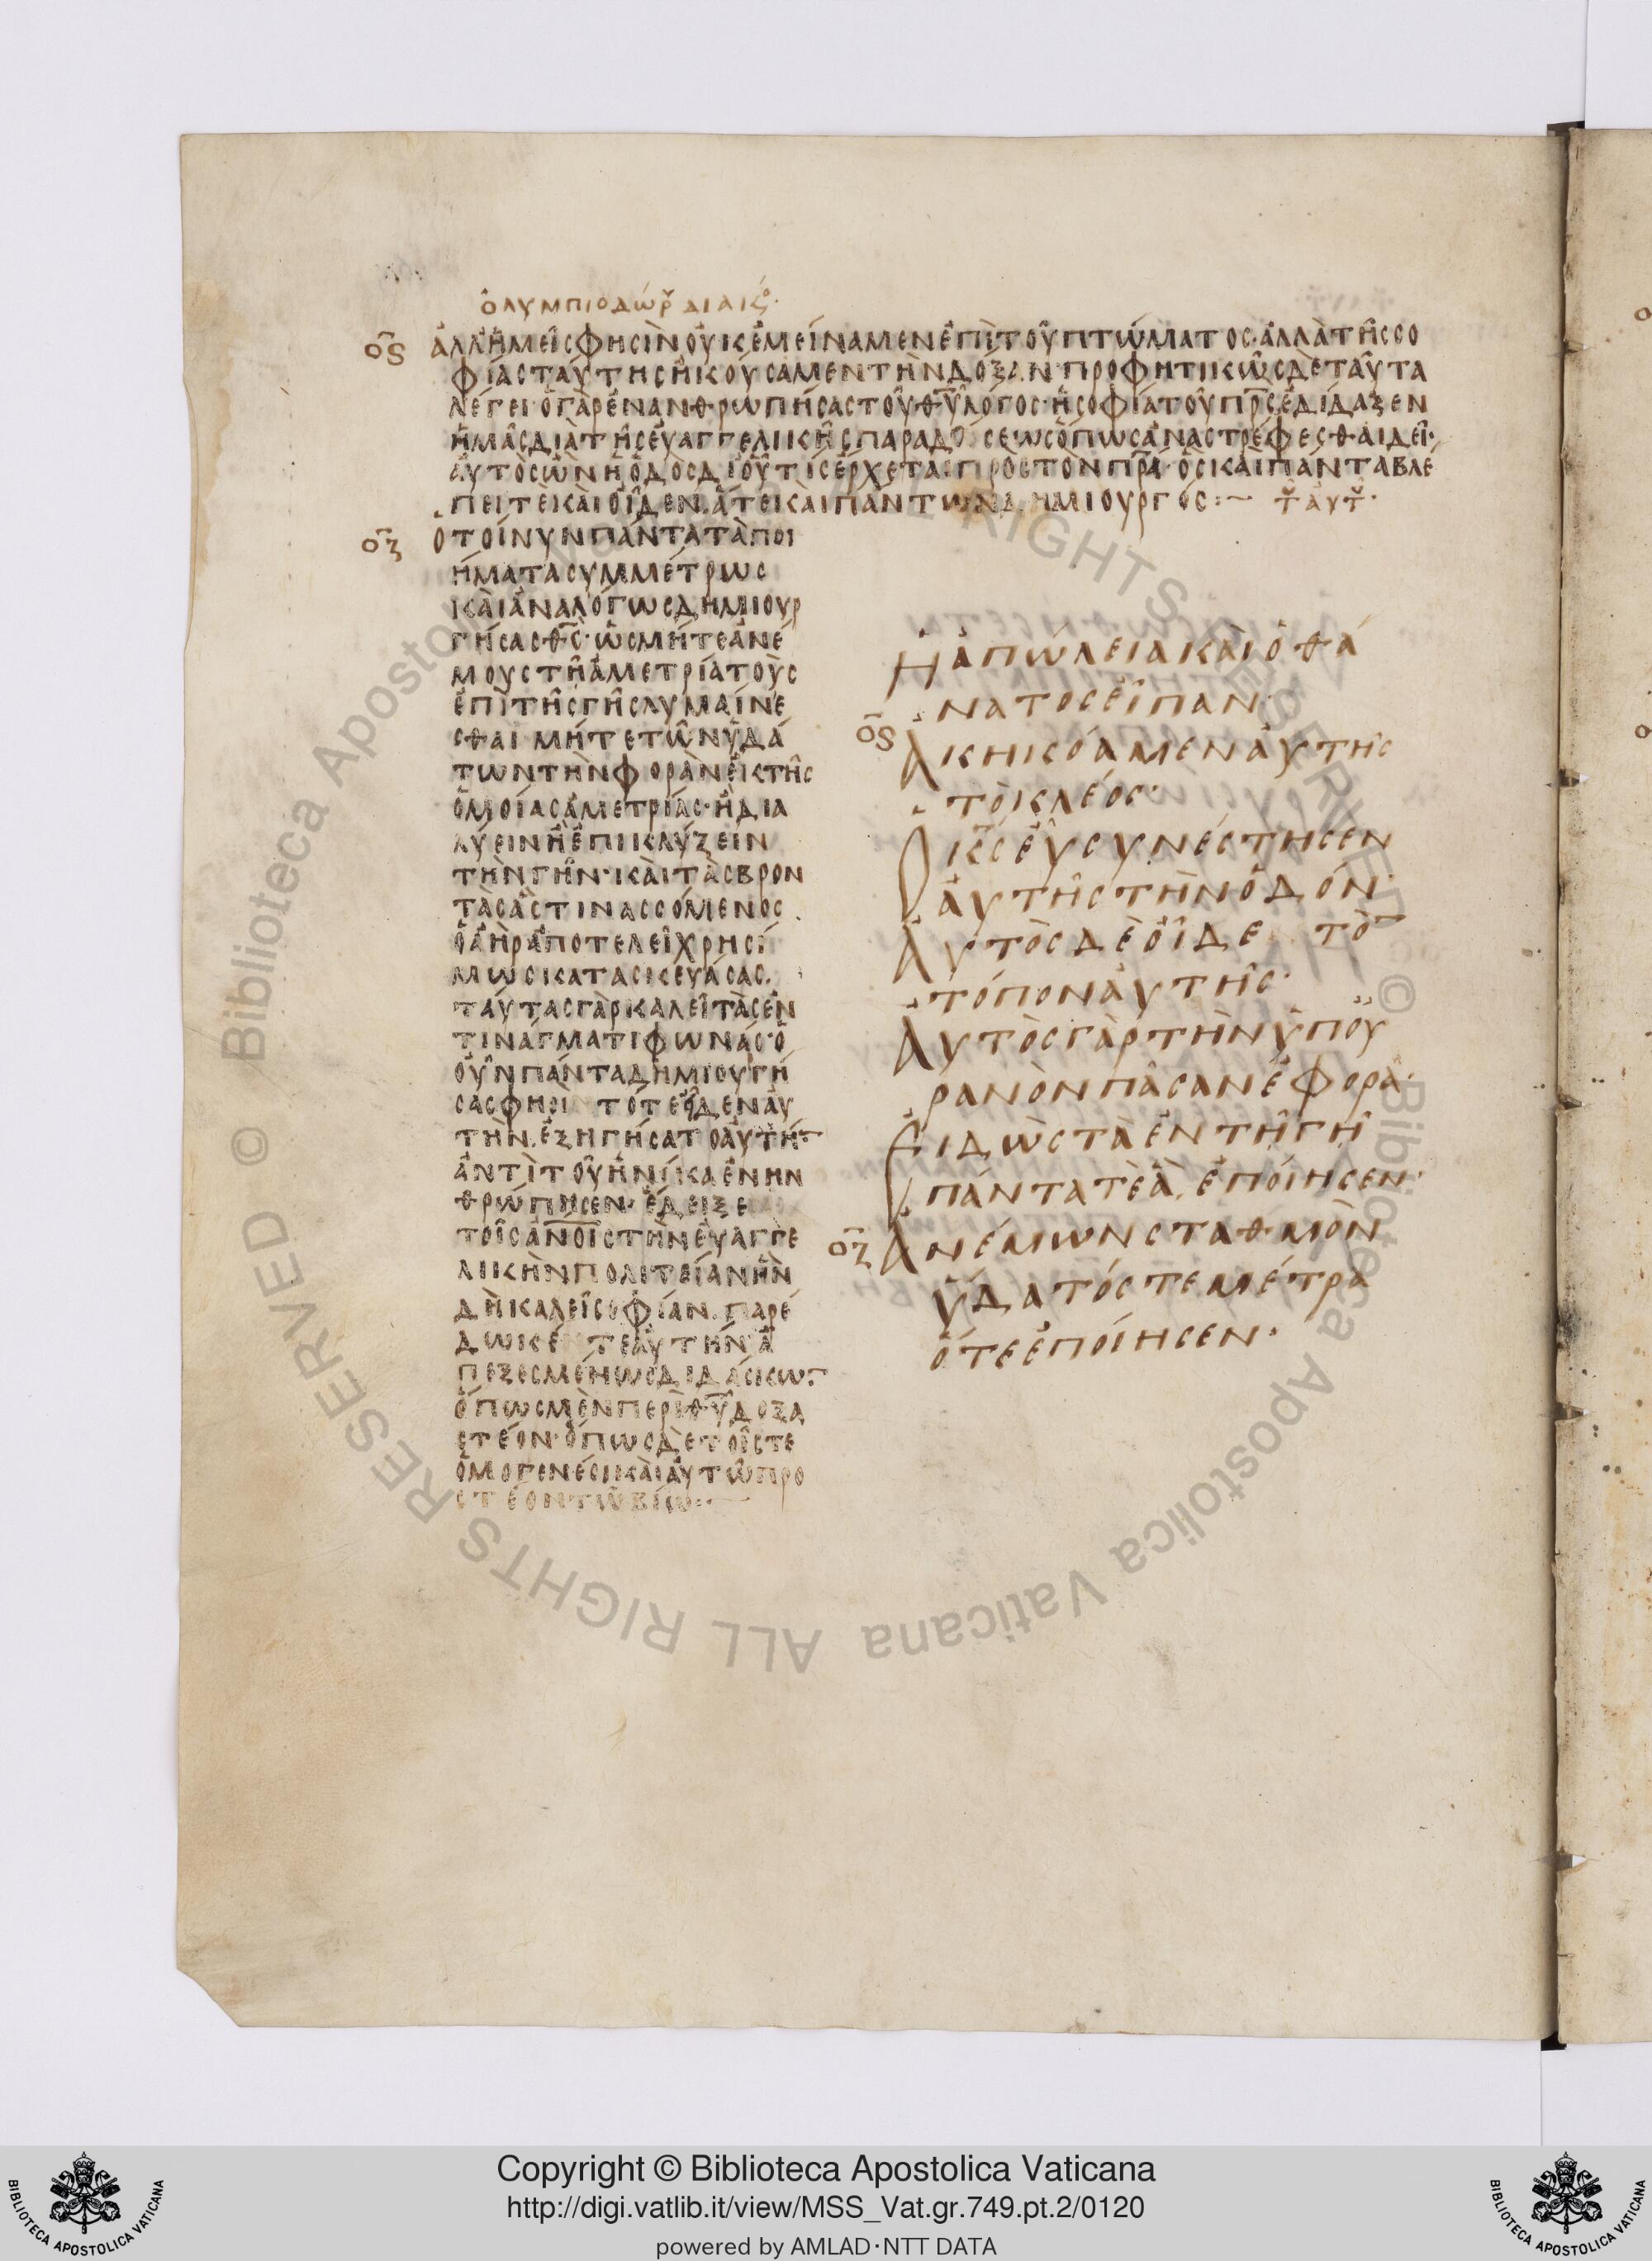 ὀλυμπιοδώρ διακό·
ος ἀλλ' ἡμεῖς φησὶν οὐκ ἐμείναμεν ἐπὶ τοῦ πτώματος· ἀλλὰ τῆς σο
φίας ταύτης ἠκούσαμεν τὴν δόξαν· προφητικῶς δὲ ταῦτα
λέγει· ὁ γὰρ ἐνανθρωπήσας τοῦ θυ λόγος· ἡ σοφία τοῦ πρς ἐδίδαξεν
ἡμᾶς διὰ τῆς εὐαγγελικῆς παραδόσεως ὅπως ἀναστρέφεσθαι δεῖ·
αὐτὸς ὢν ἡ ὁδὸς δι' οὗ τίς ἔρχεται πρὸς τὸν πρα· ὃς καὶ πάντα βλέ
πει τε καὶ οἶδεν. ἅτε καὶ πάντων δημιουργός :~ τ αυτ·
οζ ὁ τοίνυν πάντα τὰ ποι
ήματα συμμέτρως
καὶ ἀναλόγως δημιουρ
γήσας θς· ὡς μήτε ἀνέ
μους τῇ ἀμετρίᾳ τοὺς
ἐπὶ τῆς γῆς λυμαίνε
σθαι μήτε τῶν ὑδά
των τὴν φορὰν ἐκ τῆς
ὁμοίας ἀμετρίας· ἢ δια
λύειν ἢ ἐπικλύζειν
τὴν γῆν· καὶ τὰς βρον
τὰς ἃς τινασσόμενος
ὁ ἀὴρ ἀποτελεῖ χρησί
μως κατασκευάσας.
ταύτας γὰρ καλεῖ τὰς ἐν
τινάγματι φωνάς· ὁ
οὖν πάντα δημιουργή
σας φησι τότε εἶδεν αὐ
τὴν. ἐξηγήσατο αὐτήν
ἀντὶ τοῦ ἡνίκα ἐνην
θρώπησεν· ἔδειξε
τοῖς ἀνοις τὴν εὐαγγε
λικὴν πολιτείαν ἣν
δὴ καλεῖ σοφίαν. παρέ
δωκέ τε αὐτὴν ἃ
πεξεσμέηως διδάσκων
ὅπως μὲν περὶ θυ δοξα
στέον· ὅπως δὲ τοῖς τε
ὁμογενέσι καὶ αὐτῷ προ
στέον τῷ βίῳ :~
Ἡ ἀπώλεια καὶ ὁ θά
νατος εἶπαν·
ος Ἀκηκόαμεν αὐτῆς
τὸ κλέος·
Ὁ κς εὖ συνέστησεν
αὐτῆς τὴν ὁδόν·
Αὐτὸς δὲ οἶδε τὸ
τόπον αὐτῆς·
Αὐτὸς γὰρ τὴν ὑπ' οὐ
ρανὸν πᾶσαν ἐφορᾷ·
Εἰδὼς τὰ ἐν τῇ γῇ
πάντα τε ἃ ἐποίησεν·
οζ Ἀνέμων σταθμὸν
ὕδατός τε μέτρα
ὅτε ἐποίησεν·
Copyright © Biblioteca Apostolica Vaticana
http://digi.vatlib.it/view/MSS_Vat.gr.749.pt.2/0120
powered by AMLAD·NTT DATA